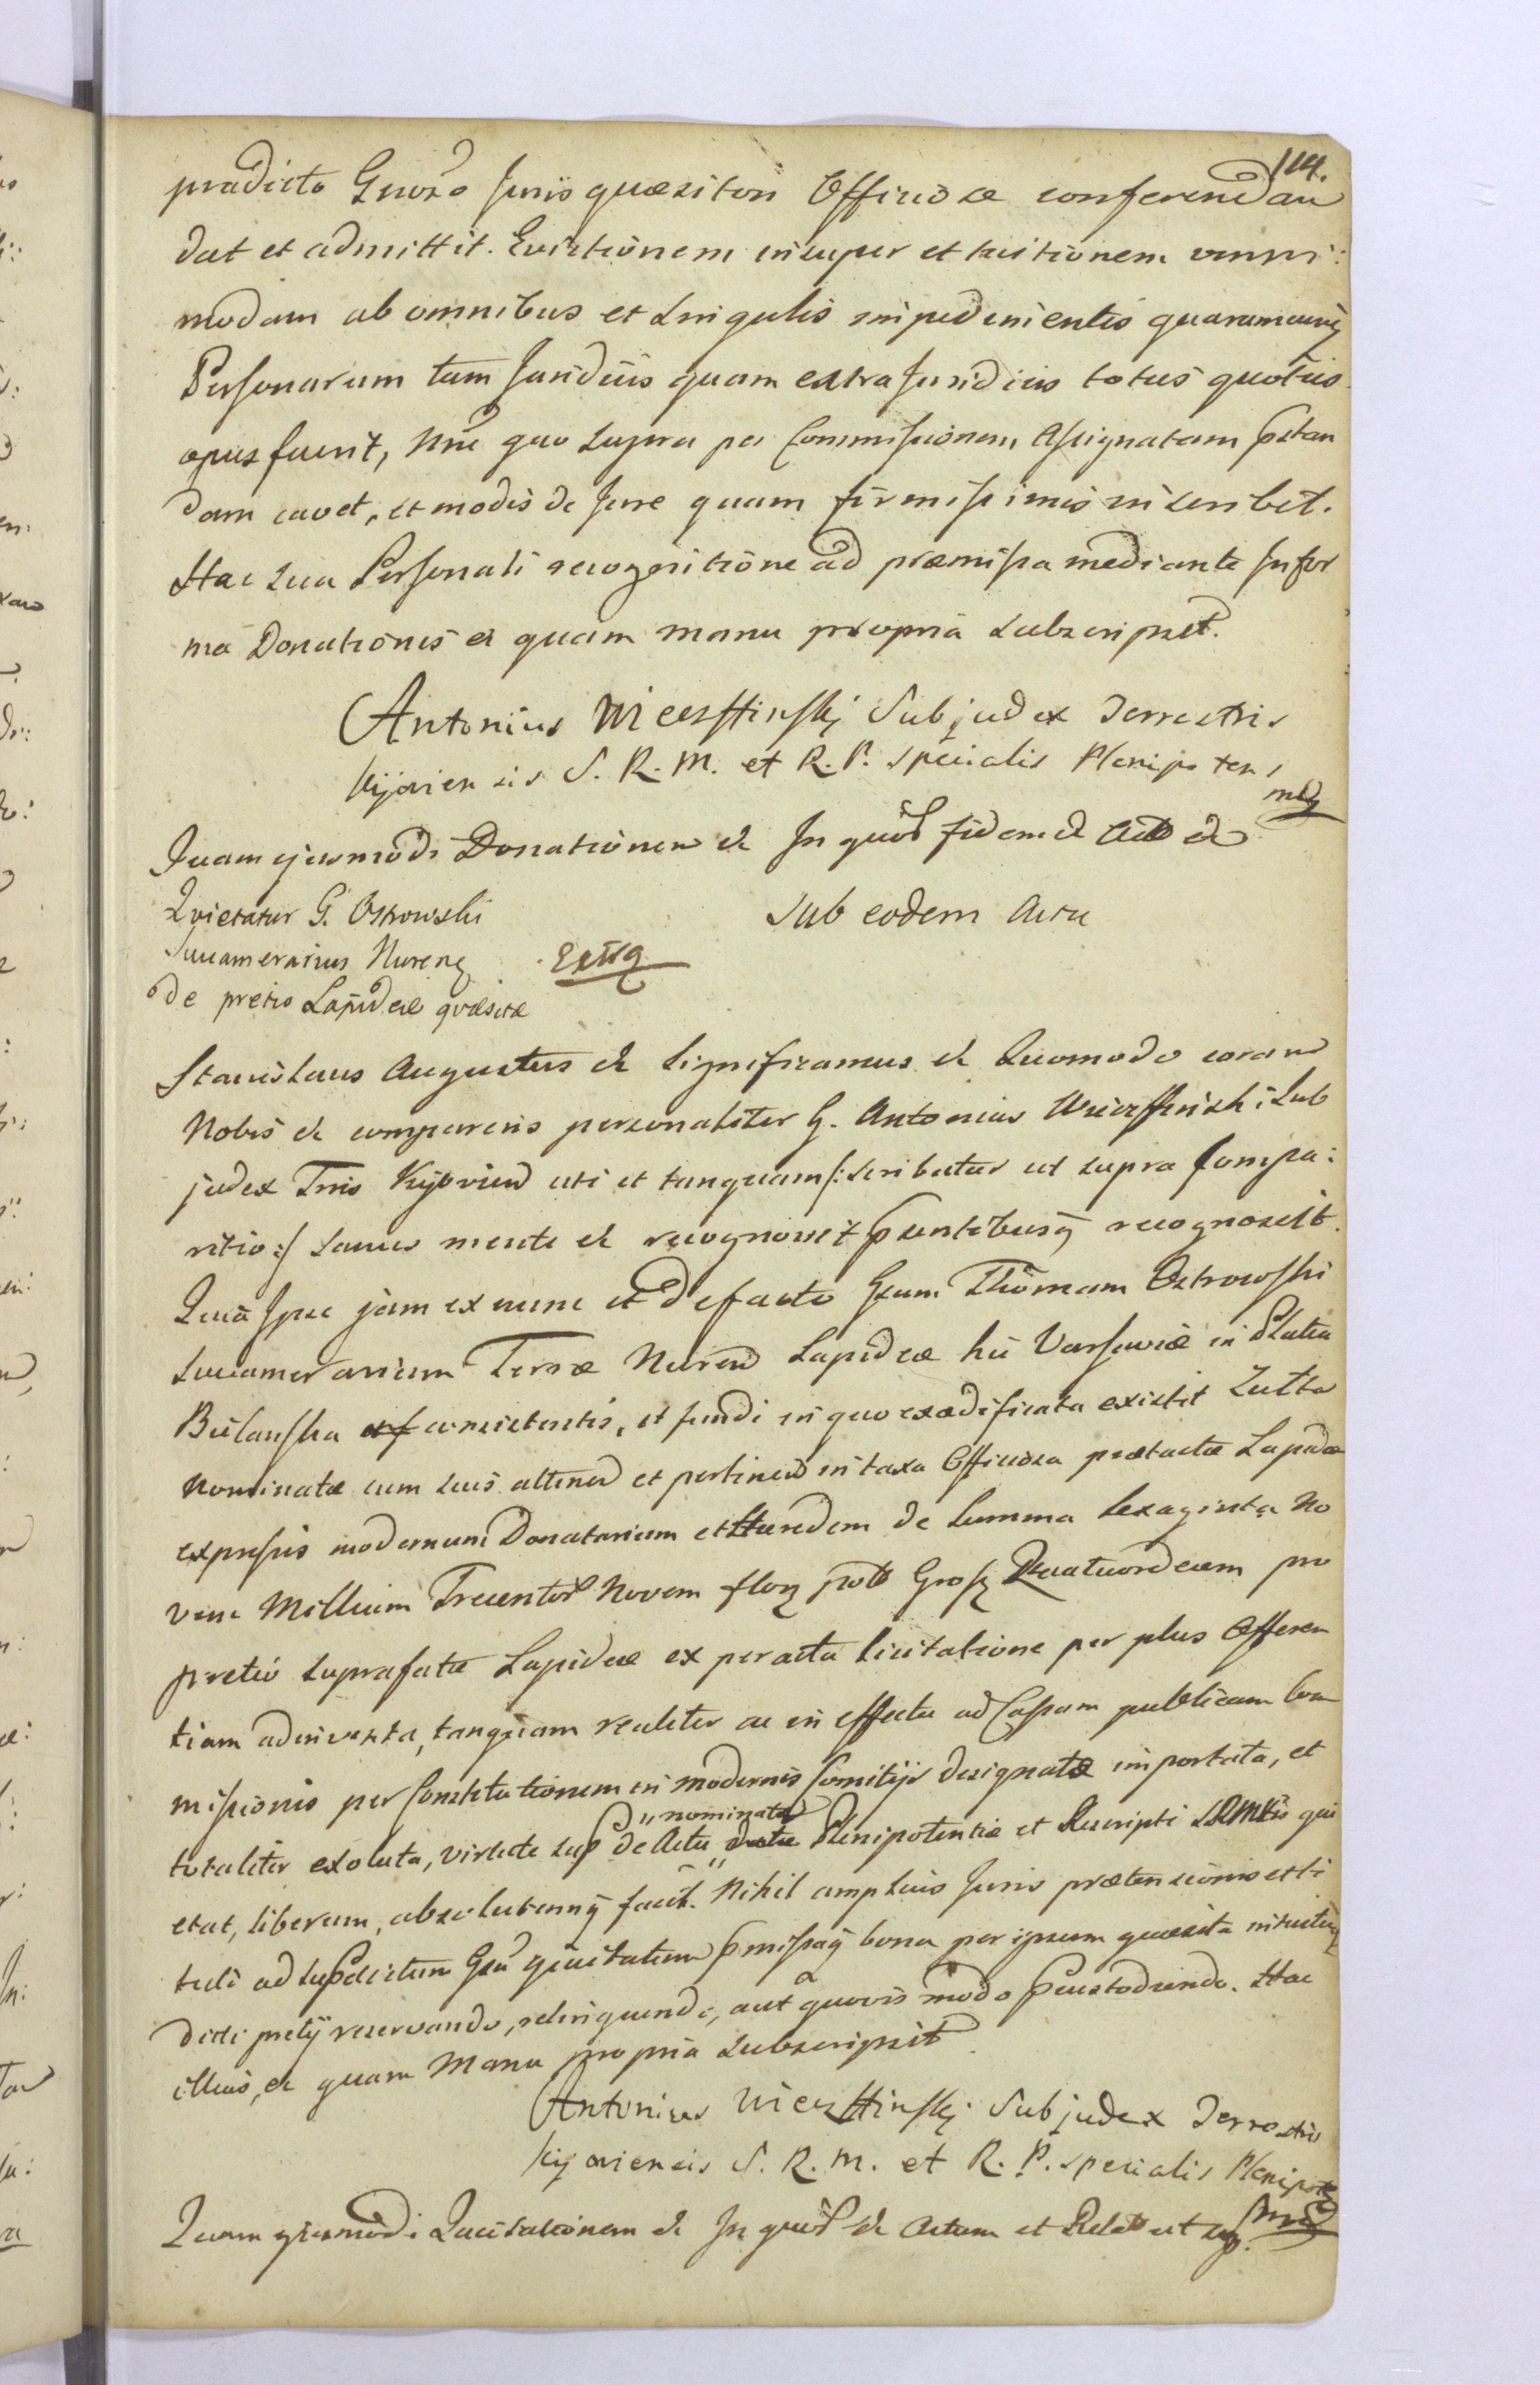 114.
prædicto Gnoso Juris quæsitori Officiose conferendam
dat et admittit. Evictionem insuper et tuitionem omni:
modam ab omnibus et singulis impedimentis quarumcunq
Personarum tam Juridicis quam extra Juridicis toties quoties
opus fuerit, Nne quo supra per Commissionem Assignatam pstan
dam cavet, et modis de Jure quam firmissimis inscribit.
Hac sua Personali recognitione ad præmissa mediante In for
ma Donationis et quam manu propria subscripsit.
Antonius Wiesztinskj Subjudex Terrestris
Kijoviensis S. R. M. et R. P. specialis Plenipotens
mp
Quam ejusmodi Donationem et In quor fidem et Act et
Quietatur G. Ostrowski
Succamerarius Nureng
de pretio Lapideæ quæsitæ
Sub eodem Actu
Stanislaus Augustus et Significamus et Quomodo coram
Nobis et comparens personaliter G. Antonius Wiesztinski Sub
judex Tris Kijovien uti et tanquam /: scribatur ut supra Compa:
ritio :/ sanus mente et recognovit pntibusq recognoscit.
Quia Ipse jam ex nunc et de facto Gsum Thomam Ostrowski
Succamerarium Terræ Nuren Lapideæ hic Varsaviæ in Platea
Bielanska consistentis, et fundi in quo exædificata existit Zutta
Nominatæ cum suis attinen et pertinen in taxa Officiosa prætactæ Lapideæ
expressis modernum Donatarium et Hæredem de Summa Sexaginta No
vem Millium Trecentor Novem flor poll Gross Quatuordecem pro
pretio suprafatæ Lapideæ ex peracta licitatione per plus Offeren
tiam adinventa, tanquam realiter ac in effectu ad Cassam publicam Com
missionis per Constitutionem in modernis Comitijs designatæ importata, et
totaliter exoluta, virtute sup de Actu " nominatæ " Plenipotentiæ et Rescripti SRMttis qui
etat, liberum, absolutumq facit. Nihil amplius Juris prætensionis et ti
tuli ad supdictum Gsum quietatum pmissaq bona per ipsum quæsita intuitu
dicti pretij reservando, relinquendo, aut quovis modo pcustodiendo. Hac
illius, et quam Manu propria subscripsit
Antonius Wiesztinskj Subjudex Terrestris
Kijoviensis S. R. M. et R. P. specialis Plenipotens
mp
Quam ejusmodi Quietationem et In quor et Actum et Relat ut sup.